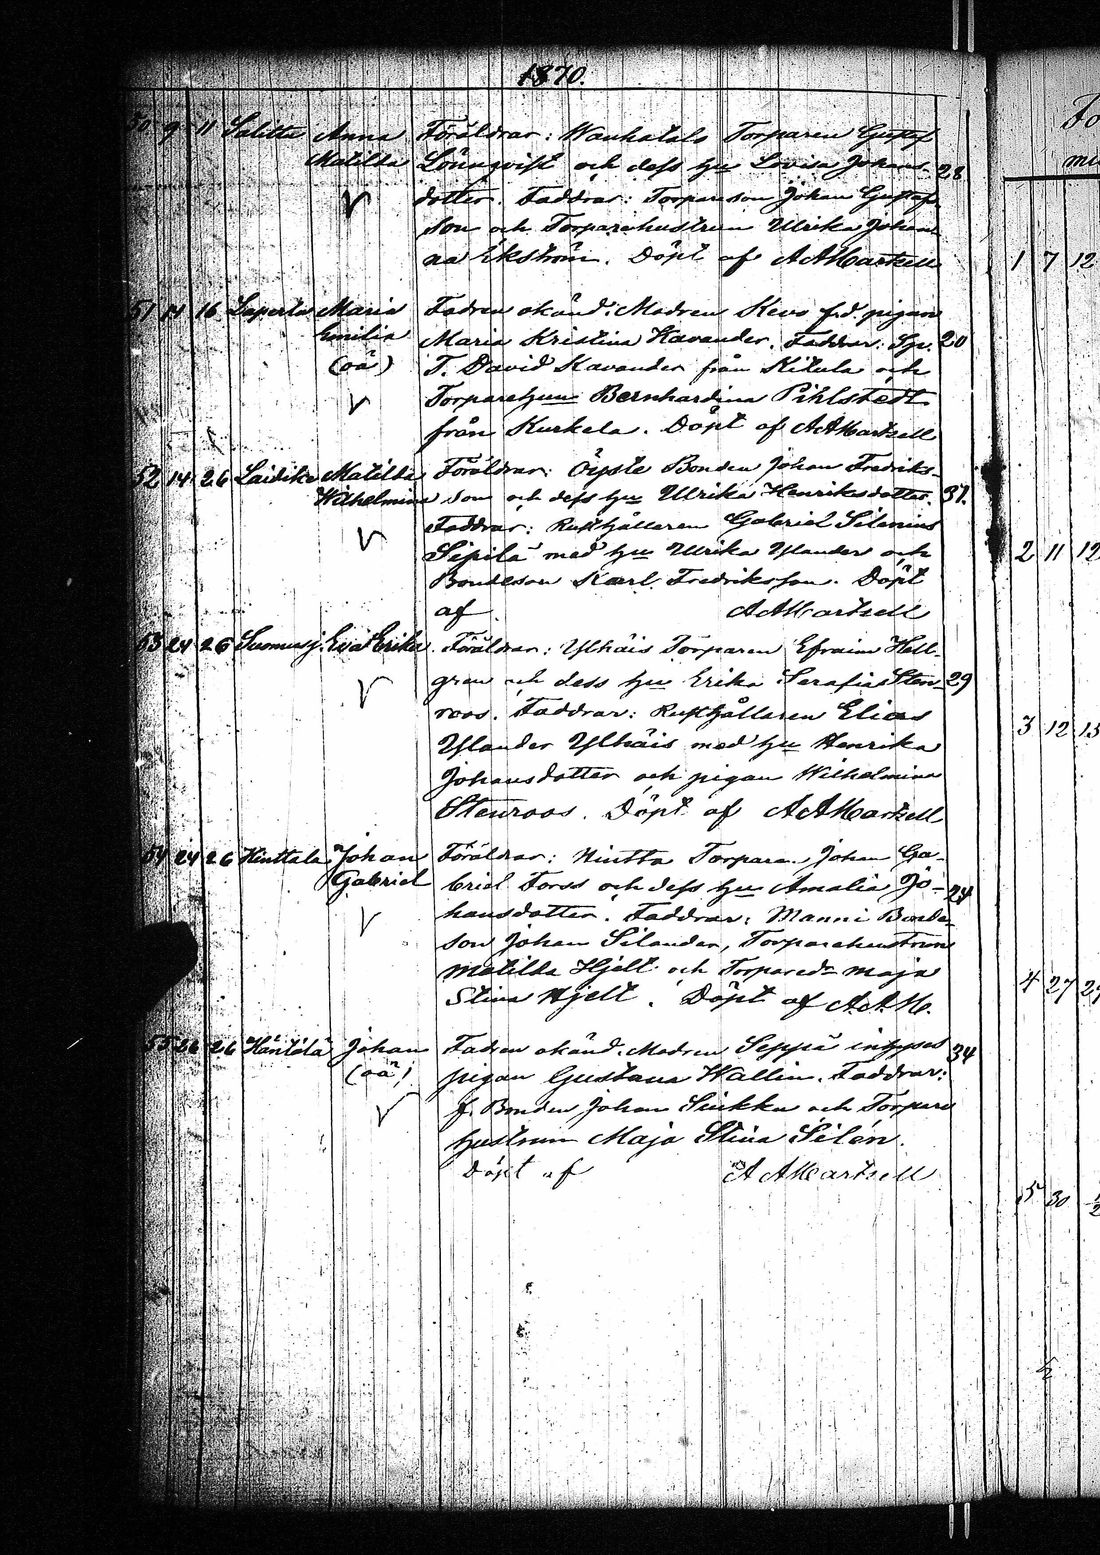 1870.
50 9 11 Salittu Anna Föräldrar: Wanhatalo Torparen Gustaf
Matilda Lönnqvist och dess hu Lovisa Johans- 28
dotter. Faddrar: Torpareson Johan Gustafs
son och Torparehustrun Ulrika Johan
na Ekström. Döpt af A A Martzell
51 14 16 Laperla Maria Fadren okänd. Modren Kevo f.d. pigan
Emilia Maria Kristina Kavander. Faddrar: 20
(oä) T. David Kavander från Kitula och
Torparehun Bernhardina Pihlstedt
från Kurkela. Döpt af A A Martzell
52 14 26 Laidike Matilda Föräldrar: Öyste Bonden Johan Fredriks-
Wilhelmina son och dess hu Ulrika Henriksdotter. 37.
Faddrar: Rusthållaren Gabriel Silenius
Sipilä med hu Ulrika Ylander och
Bondeson Karl Fredriksson. Döpt
af A A Martzell
53 24 26 Suomusj. Eva Erika Föräldrar: Ylhäis Torparen Efraim Hell-
gren och dess hu Erika Serafia Sten- 29
roos. Faddrar: Rusthållaren Elias
Ylander Ylhäis med hu Henrika
Johansdotter och pigan Wilhelmina
Stenroos. Döpt af A A Martzell
54 24 26 Hinttala Johan Föräldrar: Hintta Torpare Johan Ga-
Gabriel briel Forss och dess hu Amalia Jo- 24
hansdotter. Faddrar: Manni Bonde-
son Johan Silander, Torparehustrun
Matilda Hjelt och Torpared:r Maja
Stina Hjelt. Döpt af A. A. M.
55 26 26 Häntälä Johan Fadren okänd. Modren Seppä inhyses 34
(oä) pigan Gustava Wallin. Faddrar:
f. Bonden Johan Sinkku och Torpare
hustrun Maja Stina Silén.
Döpt af A A Martzell
Fo
1 7 12
2 11 12
3 12 13
4 27 29
5 30